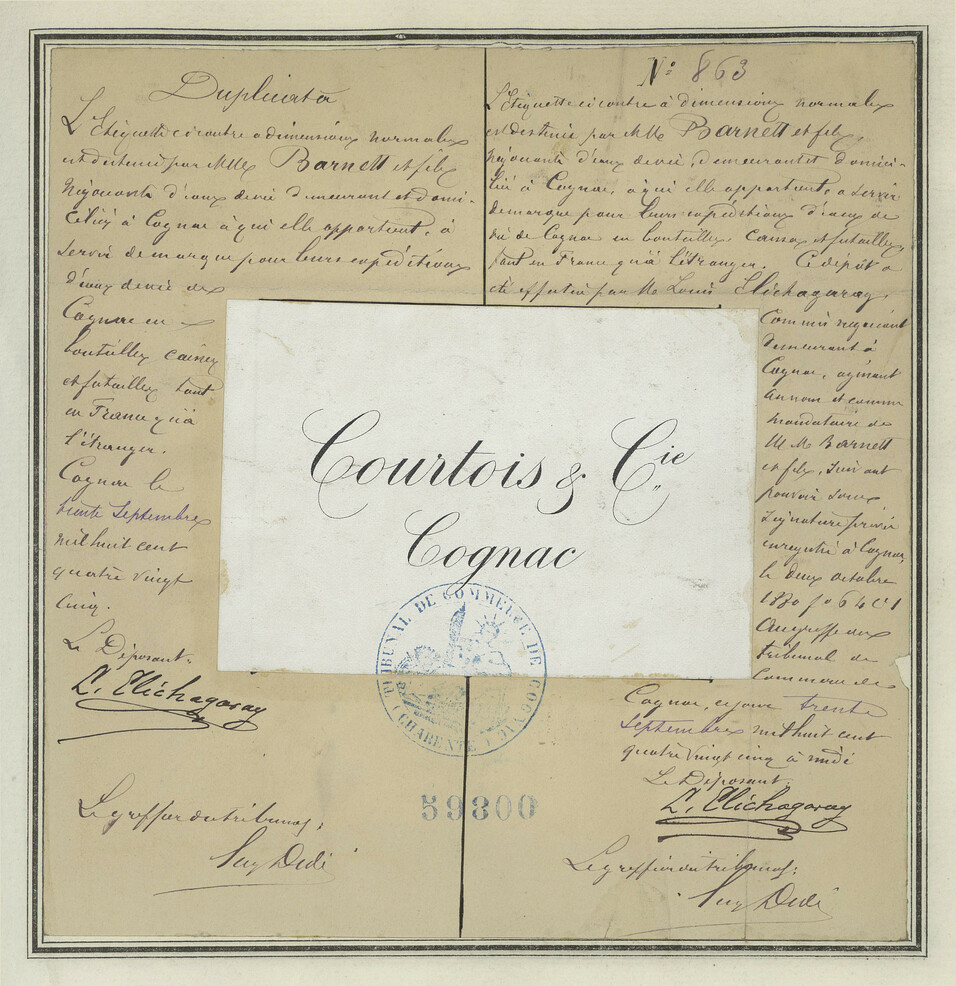 Duplicata
L'Etiquette ci contre a dimensions normales
est destinée par MM Barnett et fils
Négociants d'eaux de vie demeurant et domi-
ciliés à Cognac à qui elle appartient, à
servir de marque pour leurs expéditions
d'eaux de vie de
Cognac en
bouteilles caisses
et futailles tant
en France qu'à
l'étranger.
Cognac le
trente Septembre
mil huit cent
quatre vingt
cinq.
Le Déposant:
L. Elichagaray
Le greffier du tribunal,
Courtois & Cie
Cognac
TRIBUNAL DE COMMERCE DE COGNAC
(CHARENTE)
59300
N° 863
L'Etiquette ci contre à dimensions normales
est destinée par MM Barnett et fils,
négociants d'eaux de vie, demeurant et domici-
liés à Cognac, à qui elle appartient, a servir
de marque pour leurs expéditions d'eaux de
vie de Cognac en bouteilles, caisses et futailles
tant en France qu'à l'étranger. Ce dépôt a
été effectué par M. Louis Elichagaray,
Commis négociant
demeurant à
Cognac, agissant
au nom et comme
mandataire de
MM Barnett
et fils, suivant
pouvoir sous
signature privée
enregistré à Cognac,
le deux octobre
1880 fo 64 C 1
Au greffe du
tribunal de
Commerce de
Cognac, ce jour trente
Septembre mil huit cent
quatre vingt cinq à midi
Le Déposant,
L. Elichagaray
Le greffier du tribunal: